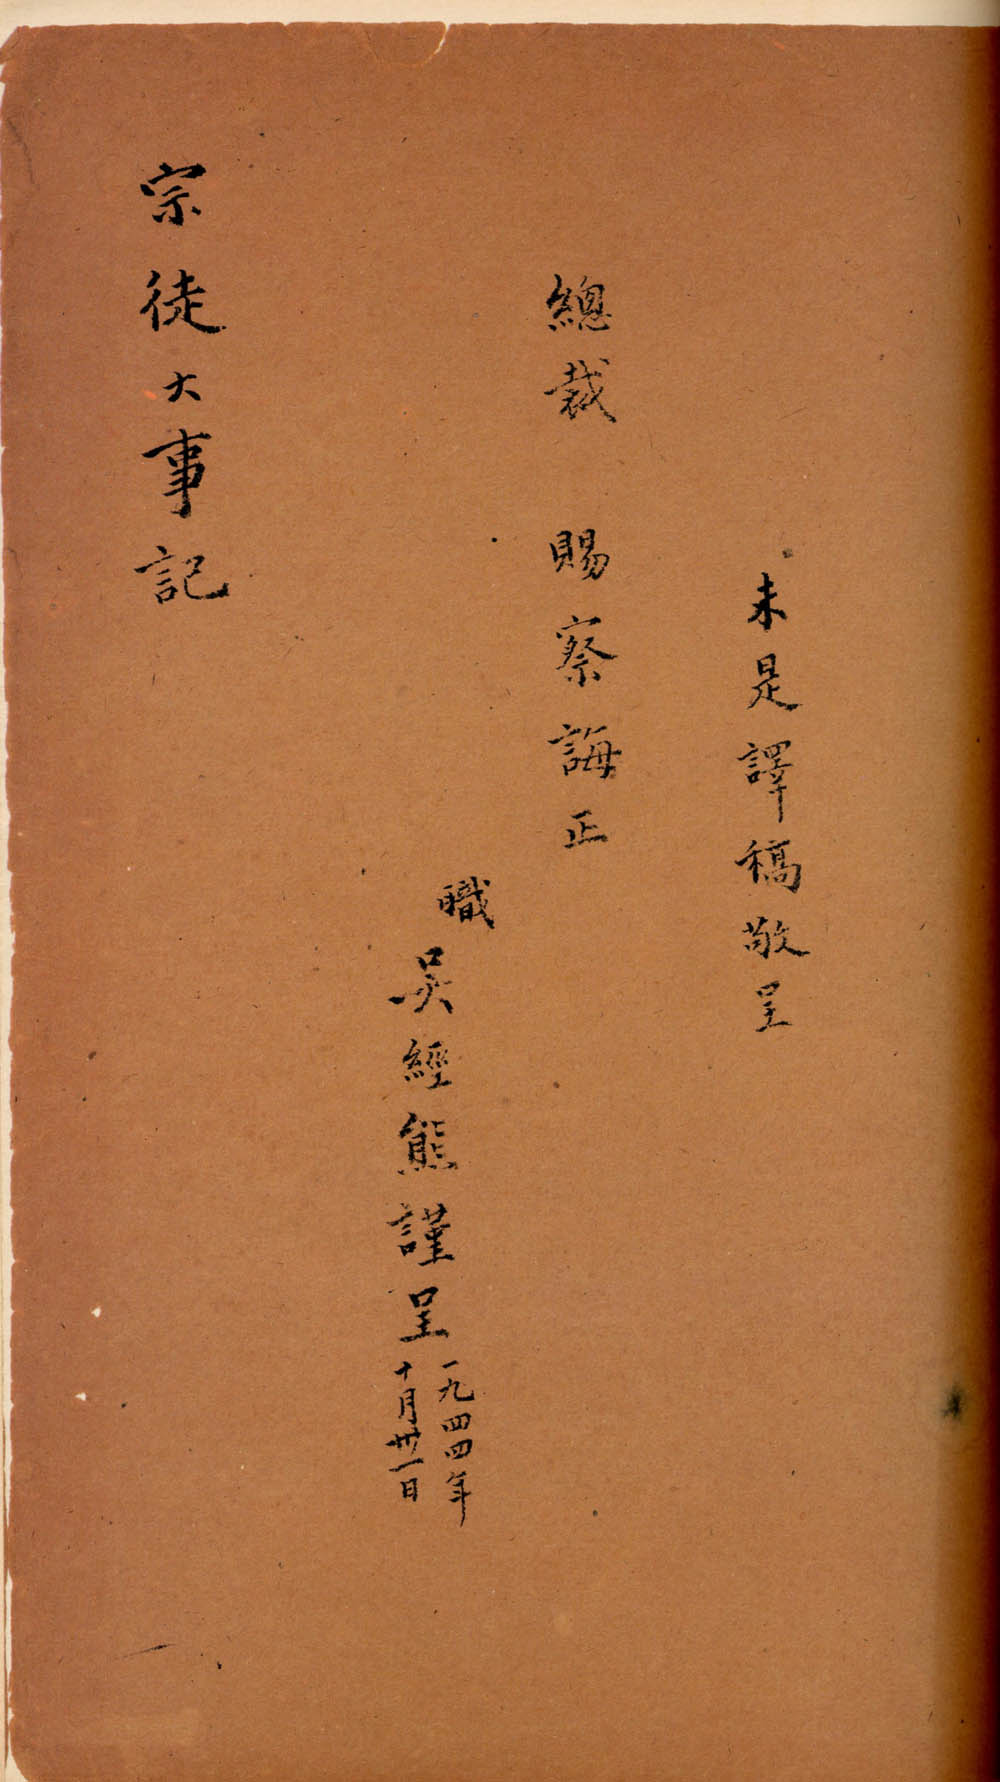 未是譯稿敬呈
總裁 賜察誨正
職
吳經熊謹呈
一九四四年
十月卅一日
宗徒大事記